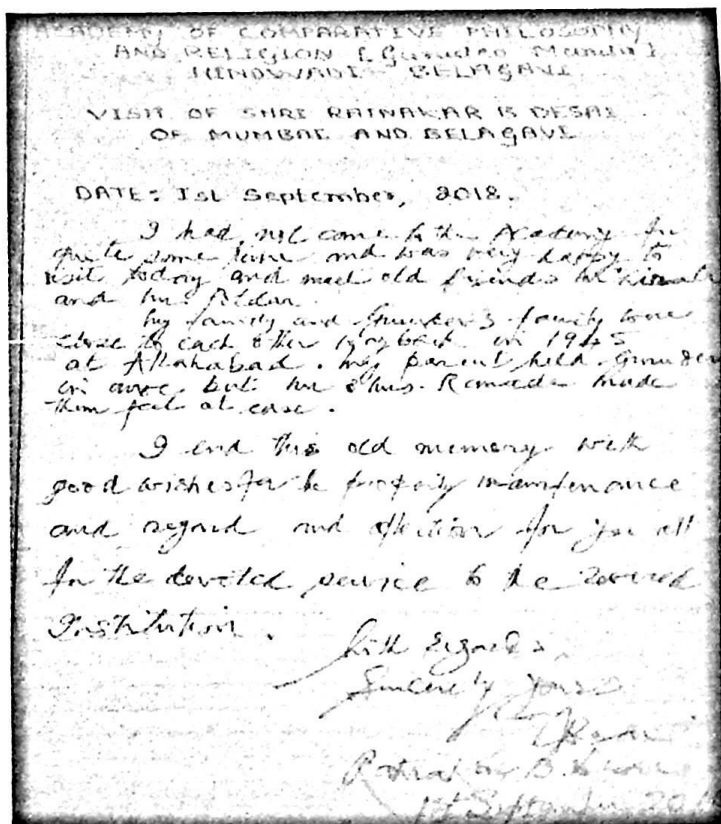 ACADEMY OF COMPARATIVE PHILOSOPHY
AND RELIGION [Gurudeo Mandir]
HINDWADI - BELAGAVI
VISIT OF SHRI RATNAKAR B DESAI
OF MUMBAI AND BELAGAVI
DATE: 1st September, 2018.
I had not come to the Academy for
quite some time and was very happy to
visit today and meet old friends
and
My family and Gurudev's family were
close to each other way back in 1945
at Allahabad. My parent held Gurudev
in awe but Mrs. Ranade made
them feel at ease.
I end this old memory with
good wishes for the maintenance
and regard and affection for you all
for the devoted service to the revered
Institution.
With regards,
Sincerely yours
Ratnakar B. Desai
1st September 2018